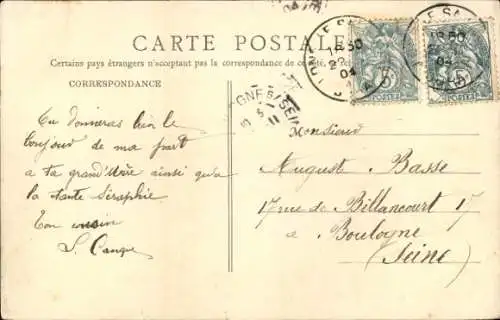 CARTE POSTALE
Certains pays étrangers n'acceptant pas la correspondance de ce côté,
CORRESPONDANCE
Tu donneras bien le
bonjour de ma part
a ta grand'Mère ainsi qu'a
la tante Séraphie
Ton cousin
Monsieur
Auguste Basse
17 rue de Billancourt 17
a Boulogne
(Seine)
18 50
04
18 50
04
POSTES